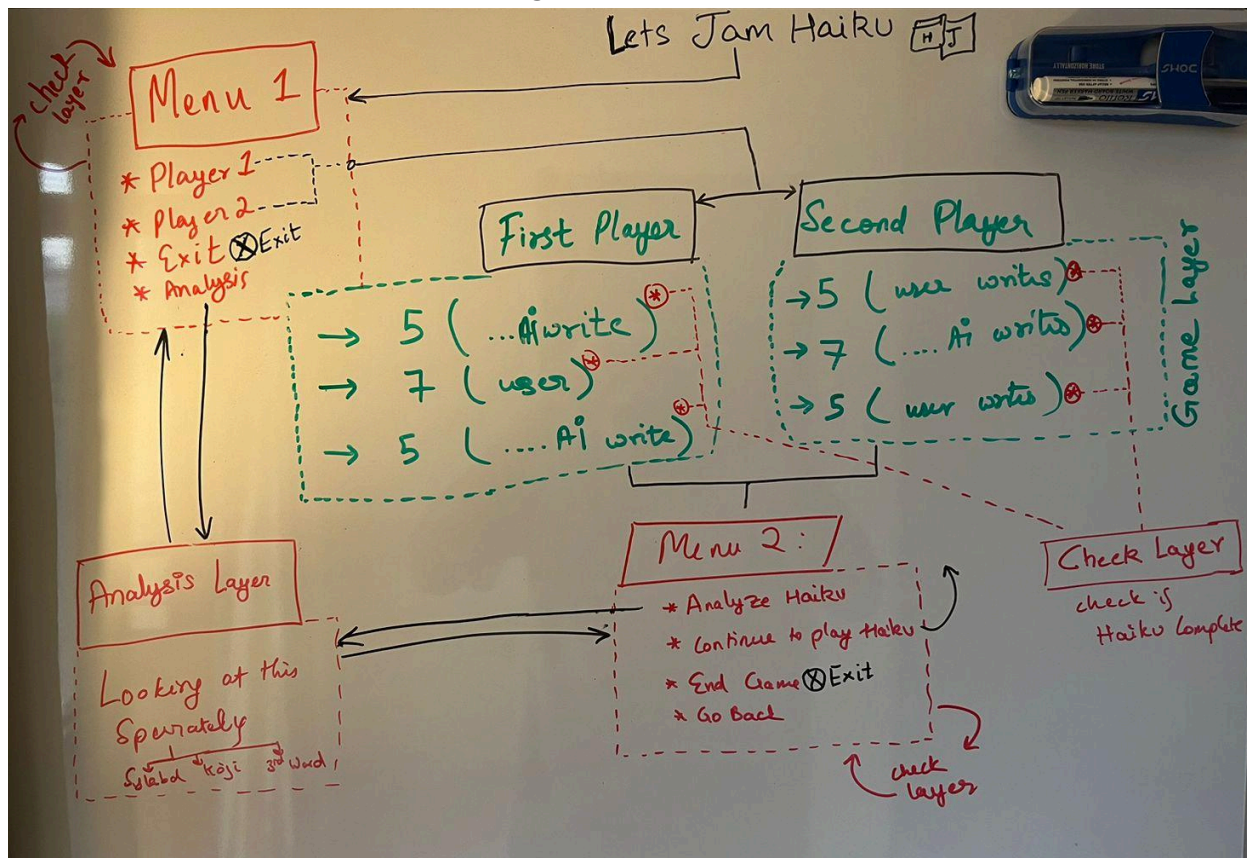 Lets Jam Haiku HJ
check layer
Menu 1
* Player 1
* Player 2
* Exit ⊗ Exit
* Analysis
First Player
→ 5 (...Ai write) *
→ 7 (user) *
→ 5 (.... Ai write) *
Second Player
→ 5 (user writes) *
→ 7 (.... Ai writes) *
→ 5 (user writes) *
Game Layer
Analysis Layer
Looking at this
3rd Word
Menu 2:
* Analyze Haiku
* Continue to play Haiku
* End Game ⊗ Exit
* Go Back
check layer
Check Layer
check is
Haiku Complete
STORE HORIZONTALLY
DOMS